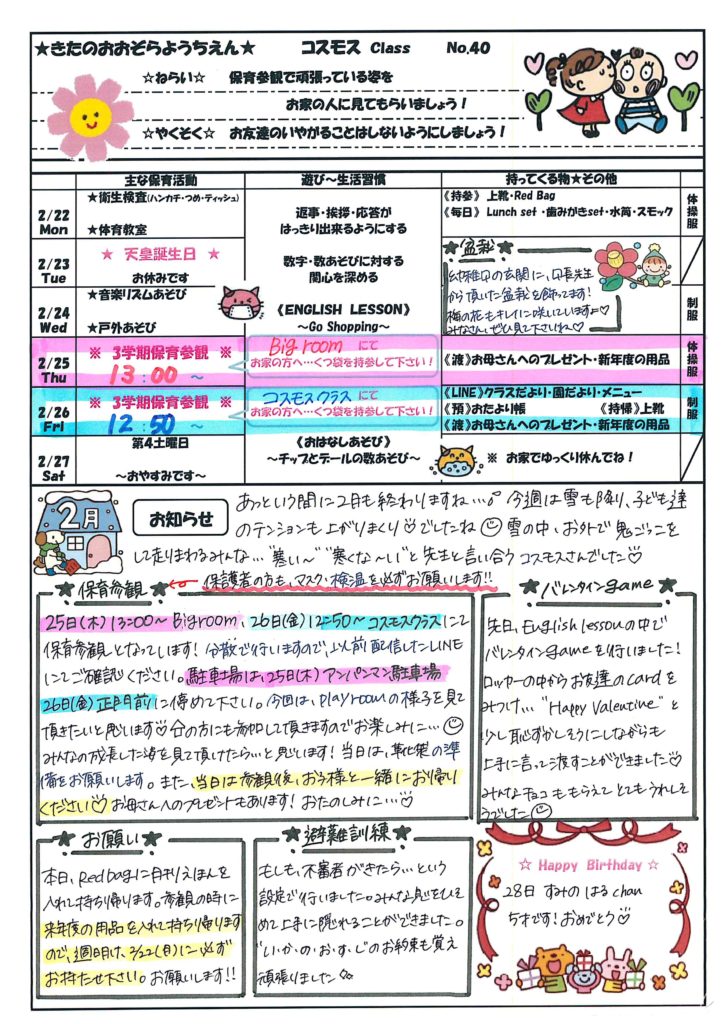 ★きたのおおぞらようちえん★ コスモス Class No,40
☆ねらい☆ 保育参観で頑張っている姿を
お家の人に見てもらいましょう！
☆やくそく☆ お友達のいやがることはしないようにしましょう！
主な保育活動 遊び～生活習慣 持ってくる物★その他
2/22 Mon
★衛生検査(ハンカチ・つめ・ティッシュ)
★体育教室
返事・挨拶・応答が
はっきり出来るようにする
《持参》 上靴・Red Bag
《毎日》 Lunch set ・歯みがきset・水筒・スモック
体操服
2/23 Tue
★ 天皇誕生日 ★
お休みです
数字・数あそびに対する
関心を深める
★盆栽★
幼稚園の玄関に、園長先生
から頂いた盆栽を飾ってます！
梅の花もキレイに咲いています♡
みなさん、ぜひ見て下さいね♡
2/24 Wed
★音楽リズムあそび
★戸外あそび
《ENGLISH LESSON》
～Go Shopping～
制服
2/25 Thu
※ 3学期保育参観 ※
13:00～
Big room にて
お家の方へ…くつ袋を持参して下さい！
《渡》お母さんへのプレゼント・新年度の用品
体操服
2/26 Fri
※ 3学期保育参観 ※
12:50～
コスモスクラス にて
お家の方へ…くつ袋を持参して下さい！
《LINE》クラスだより・園だより・メニュー
《預》おたより帳 《持帰》上靴
《渡》お母さんへのプレゼント・新年度の用品
制服
2/27 Sat
第4土曜日
～おやすみです～
《おはなしあそび》
～チップとデールの数あそび～
※ お家でゆっくり休んでね！
2月
お知らせ
あっという間に2月も終わりますね…♪ 今週は雪も降り、子ども達
のテンションも上がりまくり♡でしたね☺ 雪の中、お外で鬼ごっこを
して走りまわるみんな…"寒い～" "寒くな～い"と先生と言い合うコスモスさんでした♡
★保育参観★ ← 保護者の方も、マスク・検温を必ずお願いします!!
25日(木) 13:00～ Big room、26日(金) 12:50～ コスモスクラスにて
保育参観となっています！分散で行いますので、以前配信したLINE
にてご確認ください。駐車場は、25日(木) アンパンマン駐車場
26日(金) 正門前に停めて下さい。今回は、Play roomの様子を見て
頂きたいと思います♡
みんなの成長した姿を見て頂けたら…と思います！当日は、
準備をお願いします。また、当日は参観後、お子様と一緒にお帰り
ください♡ お母さんへのプレゼントもあります！おたのしみに…♡
★バレンタインgame★
先日、English lessonの中で
バレンタインgameを行いました！
ロッカーの中からお友達のcardを
みつけ… "Happy Valentine"と
少し恥ずかしそうにしながらも
上手に言って渡すことができました♡
みんなチョコももらえてとてもうれしそ
うでした☺
★お願い★
本日、Red bagに月刊えほんを
入れて持ち帰ります。参観の時に
来年度の用品を入れて持ち帰ります
ので、週明け、2/22(月)に必ず
お持たせ下さい。お願いします!!
★避難訓練★
もしも、不審者がきたら…という
設定で行いました。みんな息をひそ
めて上手に隠れることができました。
"い・か・の・お・す・し"のお約束も覚え
頑張りました
☆ Happy Birthday ☆
28日 すみの はる chan
5才です！おめでとう♡